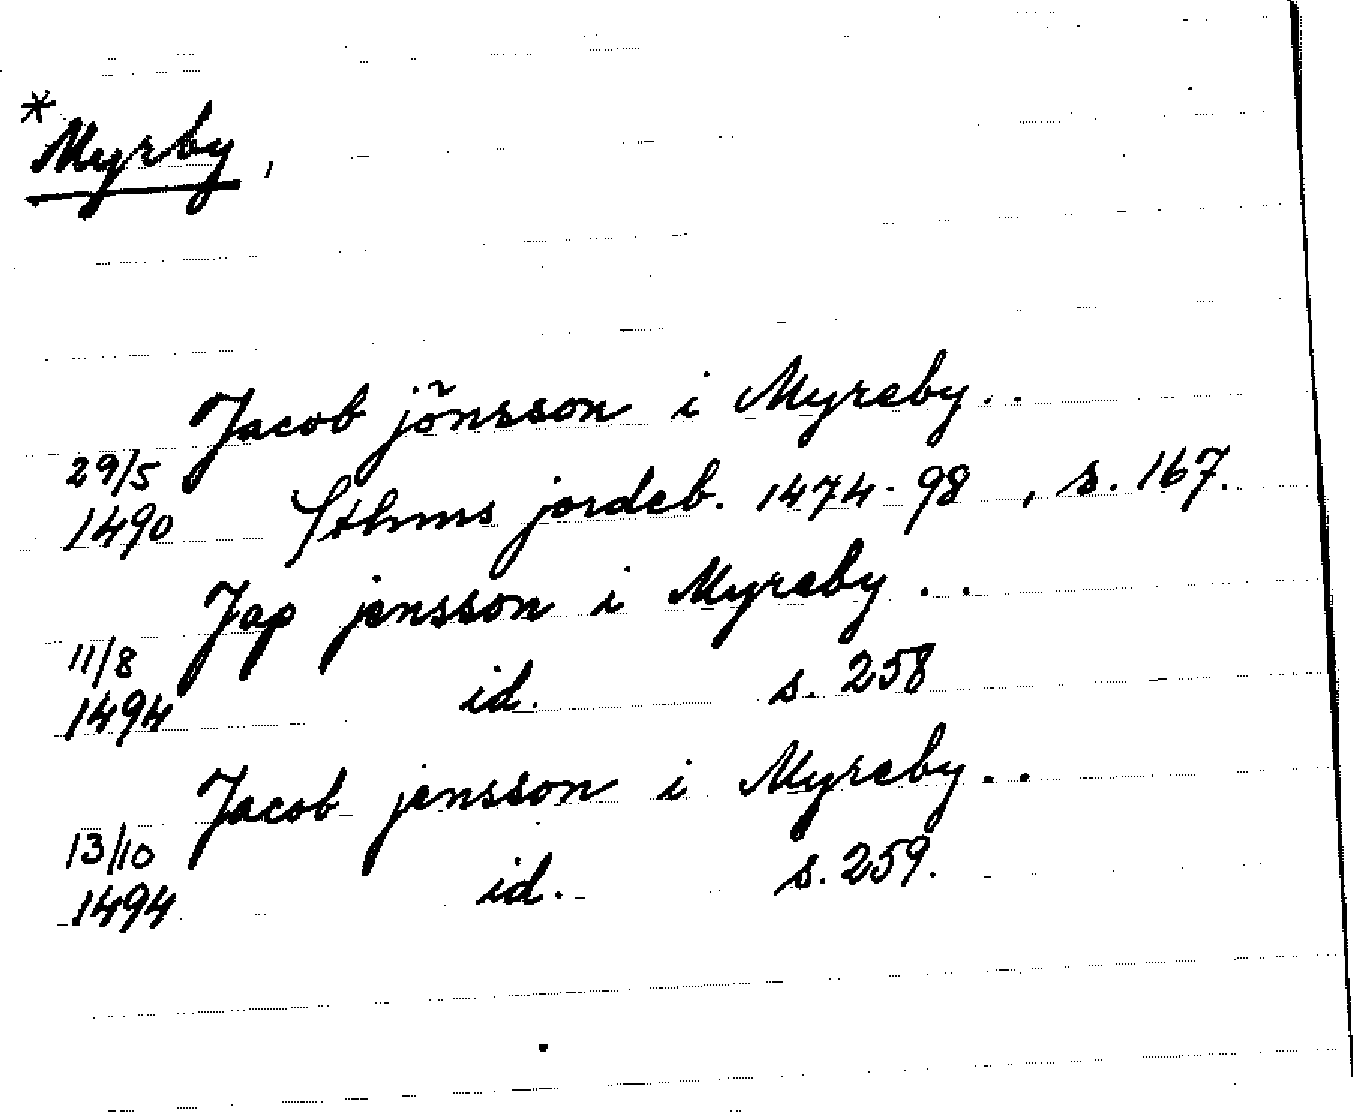 *Myrby,
Jacob jönsson i Myreby..
29/5
1490 Sthms jordeb. 1474-98, s. 167.
Jap jensson i Myreby..
11/8
1494 id. s. 258
Jacob jensson i Myreby..
13/10
1494 id. s. 259.